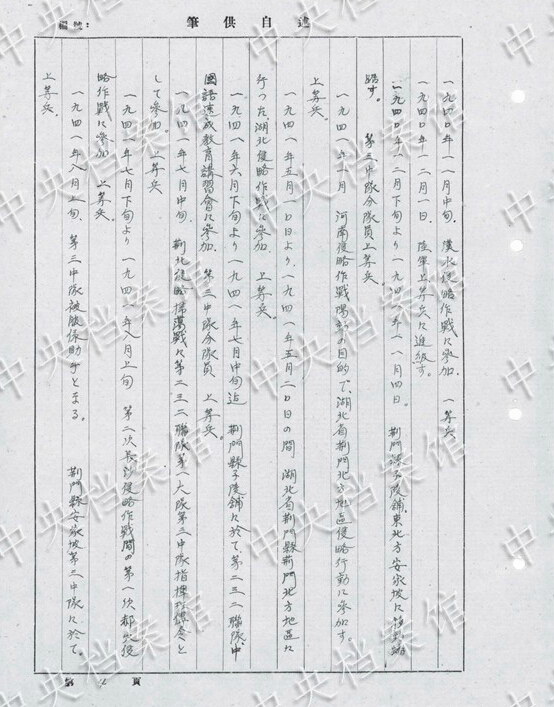 編號:
筆供自述
一九四〇年一一月中旬、漢水侵略作戦に参加、一等兵
一九四〇年一二月一日、陸軍上等兵に進級す。
一九四〇年一二月下旬より一九四一年一一月四日、荊門縣子陵鋪、東北方安家坡に
第三中隊分隊員上等兵。
一九四一年一月、河南侵略作戦陽動の目的で、湖北省荊門北方地區侵略行動に参加す。
上等兵。
一九四一年五月一〇日より、一九四一年五月二〇日の間、湖北省荊門縣荊門北方地區に
行つた湖北侵略作戦に参加、上等兵。
一九四一年六月下旬より一九四一年七月中旬迄 荊門縣子陵鋪に於て、第二三二聯隊、中
國語速成教育講習會に参加、第三中隊分隊員 上等兵。
一九四一年七月中旬、荊北侵略掃蕩戦に第二三二聯隊第一大隊第三中隊指揮班 と
して参加。上等兵
一九四一年七月下旬より一九四一年八月上旬 第二次長沙侵略作戦間の第一次 侵
略作戦に参加 上等兵。
一九四一年八月上旬、第三中隊被服係助手となる。荊門縣安家坡第三中隊に於て。
上等兵。
第 頁
中央档案馆